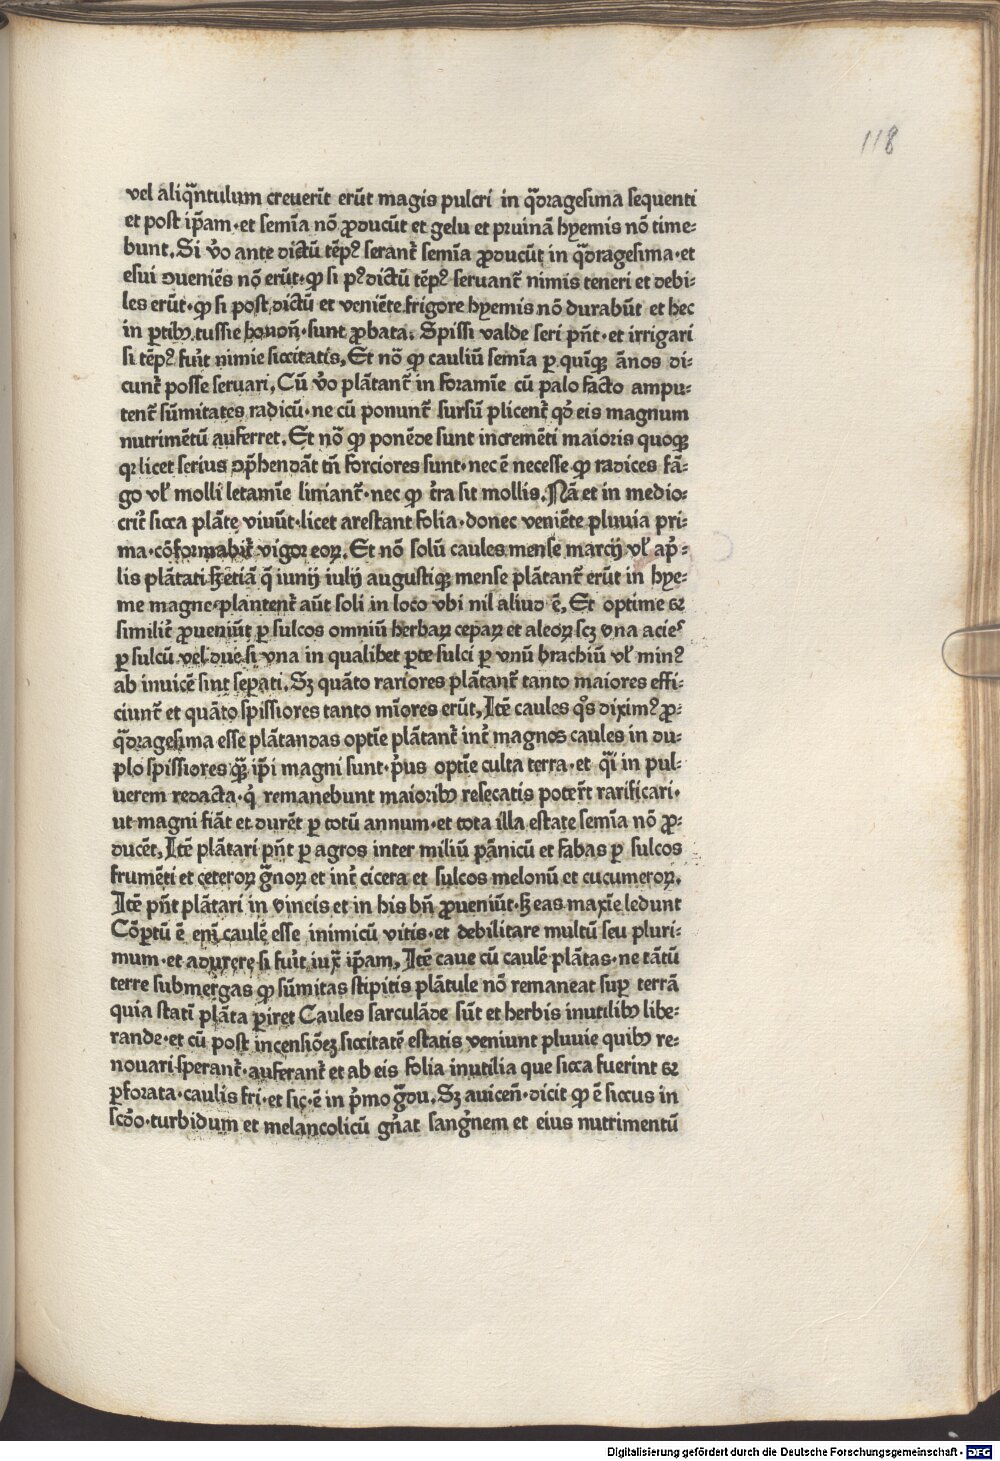 118
vel aliq̃ntulum creuerĩt erũt magis pulcri in q̃dragesima sequenti
et post ip̃am·et semĩa nõ ꝓducũt et gelu et pruinã hyemis nõ time⸗
bunt. Si ṽo ante dictũ tẽpꝰ serant᷑ semĩa ꝓducũt in q̃dragesima·et
esui ꝯueniẽs nõ erũt·ꝙ si pꝰ dictũ tẽpꝰ seruant᷑ nimis teneri et debi⸗
les erũt·ꝙ si post dictũ et veniẽte frigore hyemis nõ durabũt et hec
in ꝑtibꝫ tussie bonoñ·sunt ꝓbata. Spissi valde seri pñt·et irrigari
si tẽpꝰ fuĩt nimie siccitatis. Et nõ ꝙ cauliũ semĩa ꝑ quĩqꝫ ãnos di⸗
cunt᷑ posse seruari. Cũ ṽo plãtant᷑ in foramĩe cũ palo facto ampu⸗
tent᷑ sũmitates radicũ·ne cũ ponunt᷑ sursũ plicent᷑ qð eis magnum
nutrimẽtũ auferret. Et nõ ꝙ ponẽde sunt incremẽti maioris quoqꝫ
qꝛ licet serius ꝯp̃hendãt tñ forciores sunt·nec ẽ necesse ꝙ radices fã⸗
go vl̃ molli letamĩe liniant᷑·nec ꝙ t̃ra sit mollis. Nã et in medio⸗
crit᷑ sicca plãte viuũt·licet arestant folia·donec veniẽte pluuia pri⸗
ma·cõformabit᷑ vigor eoꝝ. Et nõ solũ caules mense marcij vl̃ ap̃⸗
lis plãtati sꝫ etiã q̃ iunij iulij augustiqꝫ mense plãtant᷑ erũt in hye⸗
me magne·plantent᷑ aũt soli in loco vbi nil aliud ẽ. Et optime et
similit᷑ ꝓueniũt ꝑ sulcos omniũ herbaꝝ cepaꝝ et aleoꝝ scꝫ vna acies
ꝑ sulcũ vel due si vna in qualibet ꝑte sulci ꝑ vnũ brachiũ vl̃ minꝰ
ab inuicẽ sint seꝑati. Sꝫ quãto rariores plãtant᷑ tanto maiores effi⸗
ciunt᷑ et quãto spissiores tanto mĩores erũt. Itẽ caules q̃s diximꝰ ꝓ⸗
q̃dragesima esse plãtandas optĩe plãtant᷑ int᷑ magnos caules in du⸗
plo spissiores q̃ꝫ ip̃i magni sunt·p̃us optĩe culta terra·et q̃i in pul⸗
uerem redacta·q̃ remanebunt maioribꝫ resecatis poter̃t rarificari·
ut magni fiãt et durẽt ꝑ totũ annum·et tota illa estate semĩa nõ ꝓ⸗
ducẽt. Itẽ plãtari pñt ꝑ agros inter miliũ pãnicũ et fabas ꝑ sulcos
frumẽti et ceteroꝝ g̃noꝝ et int᷑ cicera et sulcos melonũ et cucumeroꝝ.
Itẽ pñt plãtari in vineis et in his bñ ꝓueniũt·sꝫ eas maxĩe ledunt
Cõꝑtũ ẽ em̃ caulẽ esse inimicũ vitis·et debilitare multũ seu pluri⸗
mum·et adurere si fuĩt iux̃ ip̃am. Itẽ caue cũ caulẽ plãtas·ne tãtũ
terre submergas ꝙ sũmitas stipitis plãtule nõ remaneat suꝑ terrã
quia statĩ plãta ꝑiret Caules sarculãde sũt et herbis inutilibꝫ libe⸗
rande·et cũ post incensiõeꝫ siccitatẽ estatis veniunt pluuie quibꝫ re⸗
nouari sperant᷑·auferant᷑ et ab eis folia inutilia que sicca fuerint et
ꝑforata·caulis fri·et sic·ẽ in p̃mo g̃du. Sꝫ auiceñ·dicit ꝙ ẽ siccus in
scðo·turbidum et melancolicũ gñat sang̃nem et eius nutrimentũ
Digitalisierung gefördert durch die Deutsche Forschungsgemeinschaft · DFG